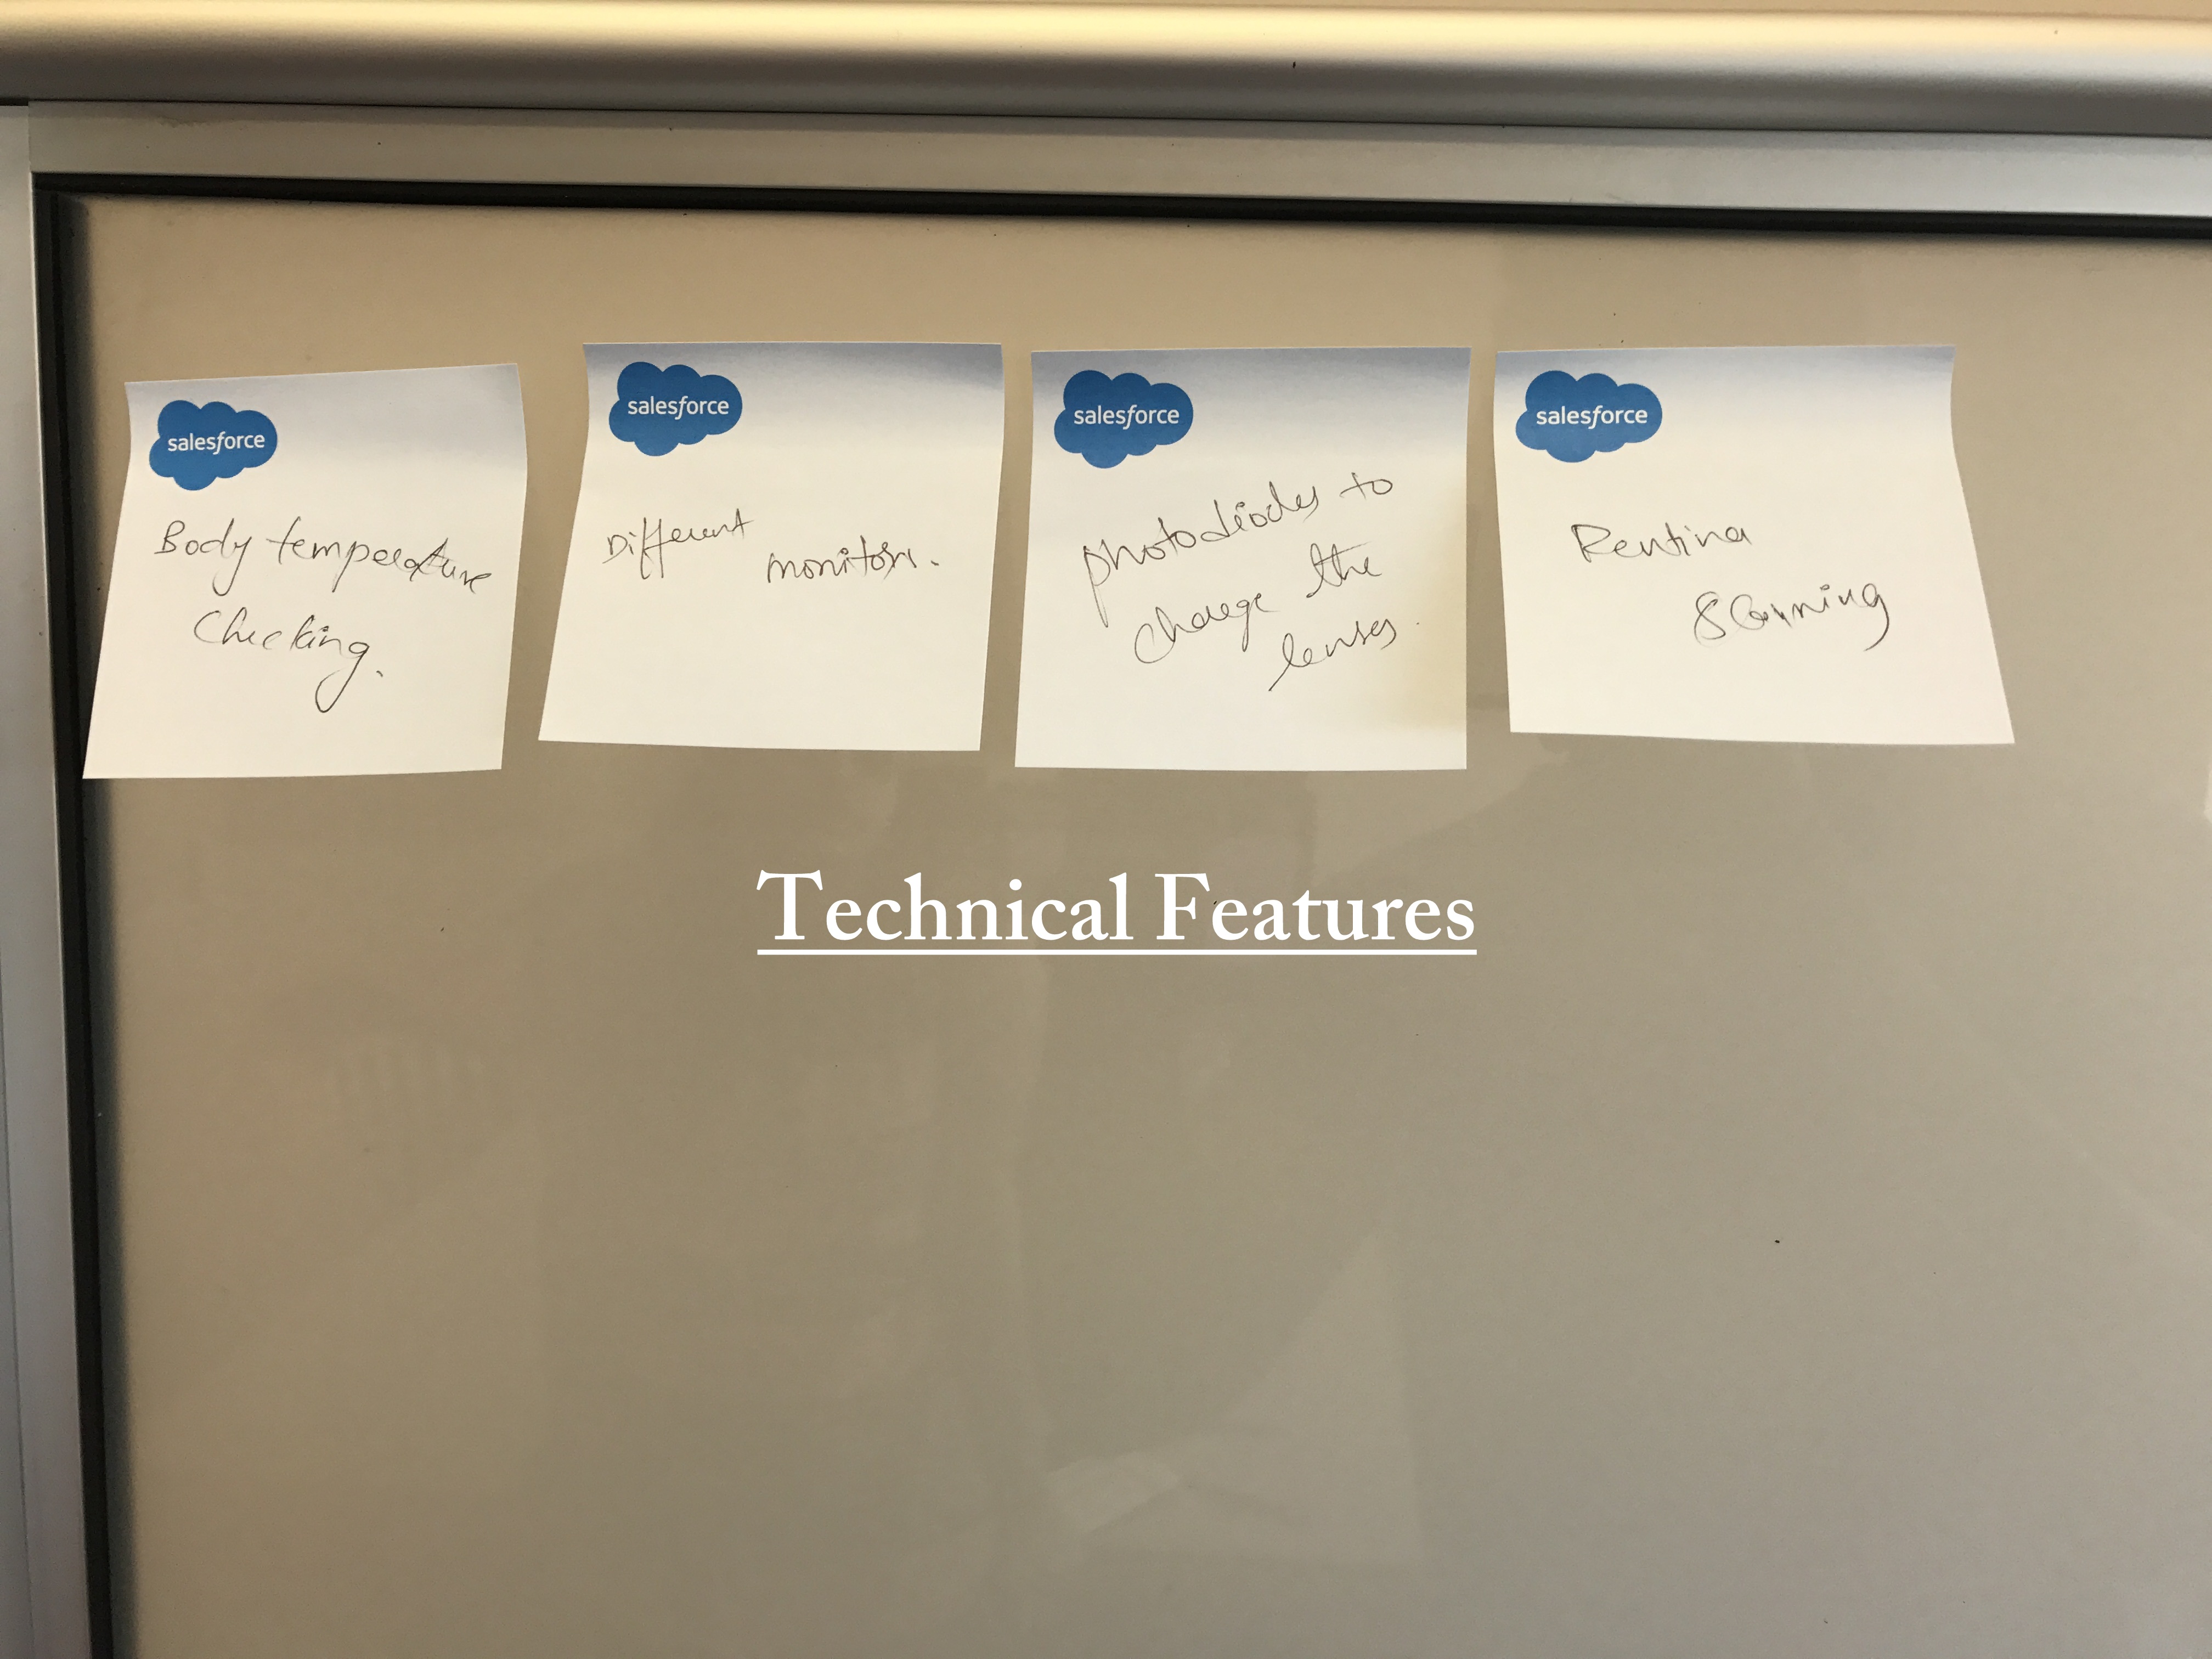 salesforce
Body temperature
Checking.
salesforce
Different
monitors.
salesforce
photodiodes to
change the
lenses.
salesforce
Rentina
Scanning
Technical Features